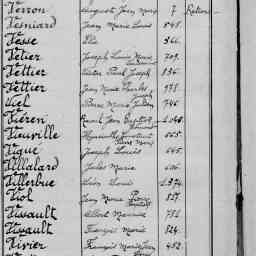 Verron August Jean Marie 7
Vesniard Jean Marie Louis 848.
Vesse Elie 366.
Vetier Joseph Louis Marie 709.
Vettier Victor Paul Joseph 836.
Vettier Jean Marie Charles 978.
Viel Pierre Marie Julien 746.
René Jean Baptiste 1.048.
Vieuville 665.
Vigué Joseph Louis 645.
Villalard Jules Marie 606.
Villerbue Louis 1.374.
Viol Jean Marie Pierre 827.
Vissault Albert Maurice 731.
Vissault François Marie 824.
Vivier François Marie Jean 452.